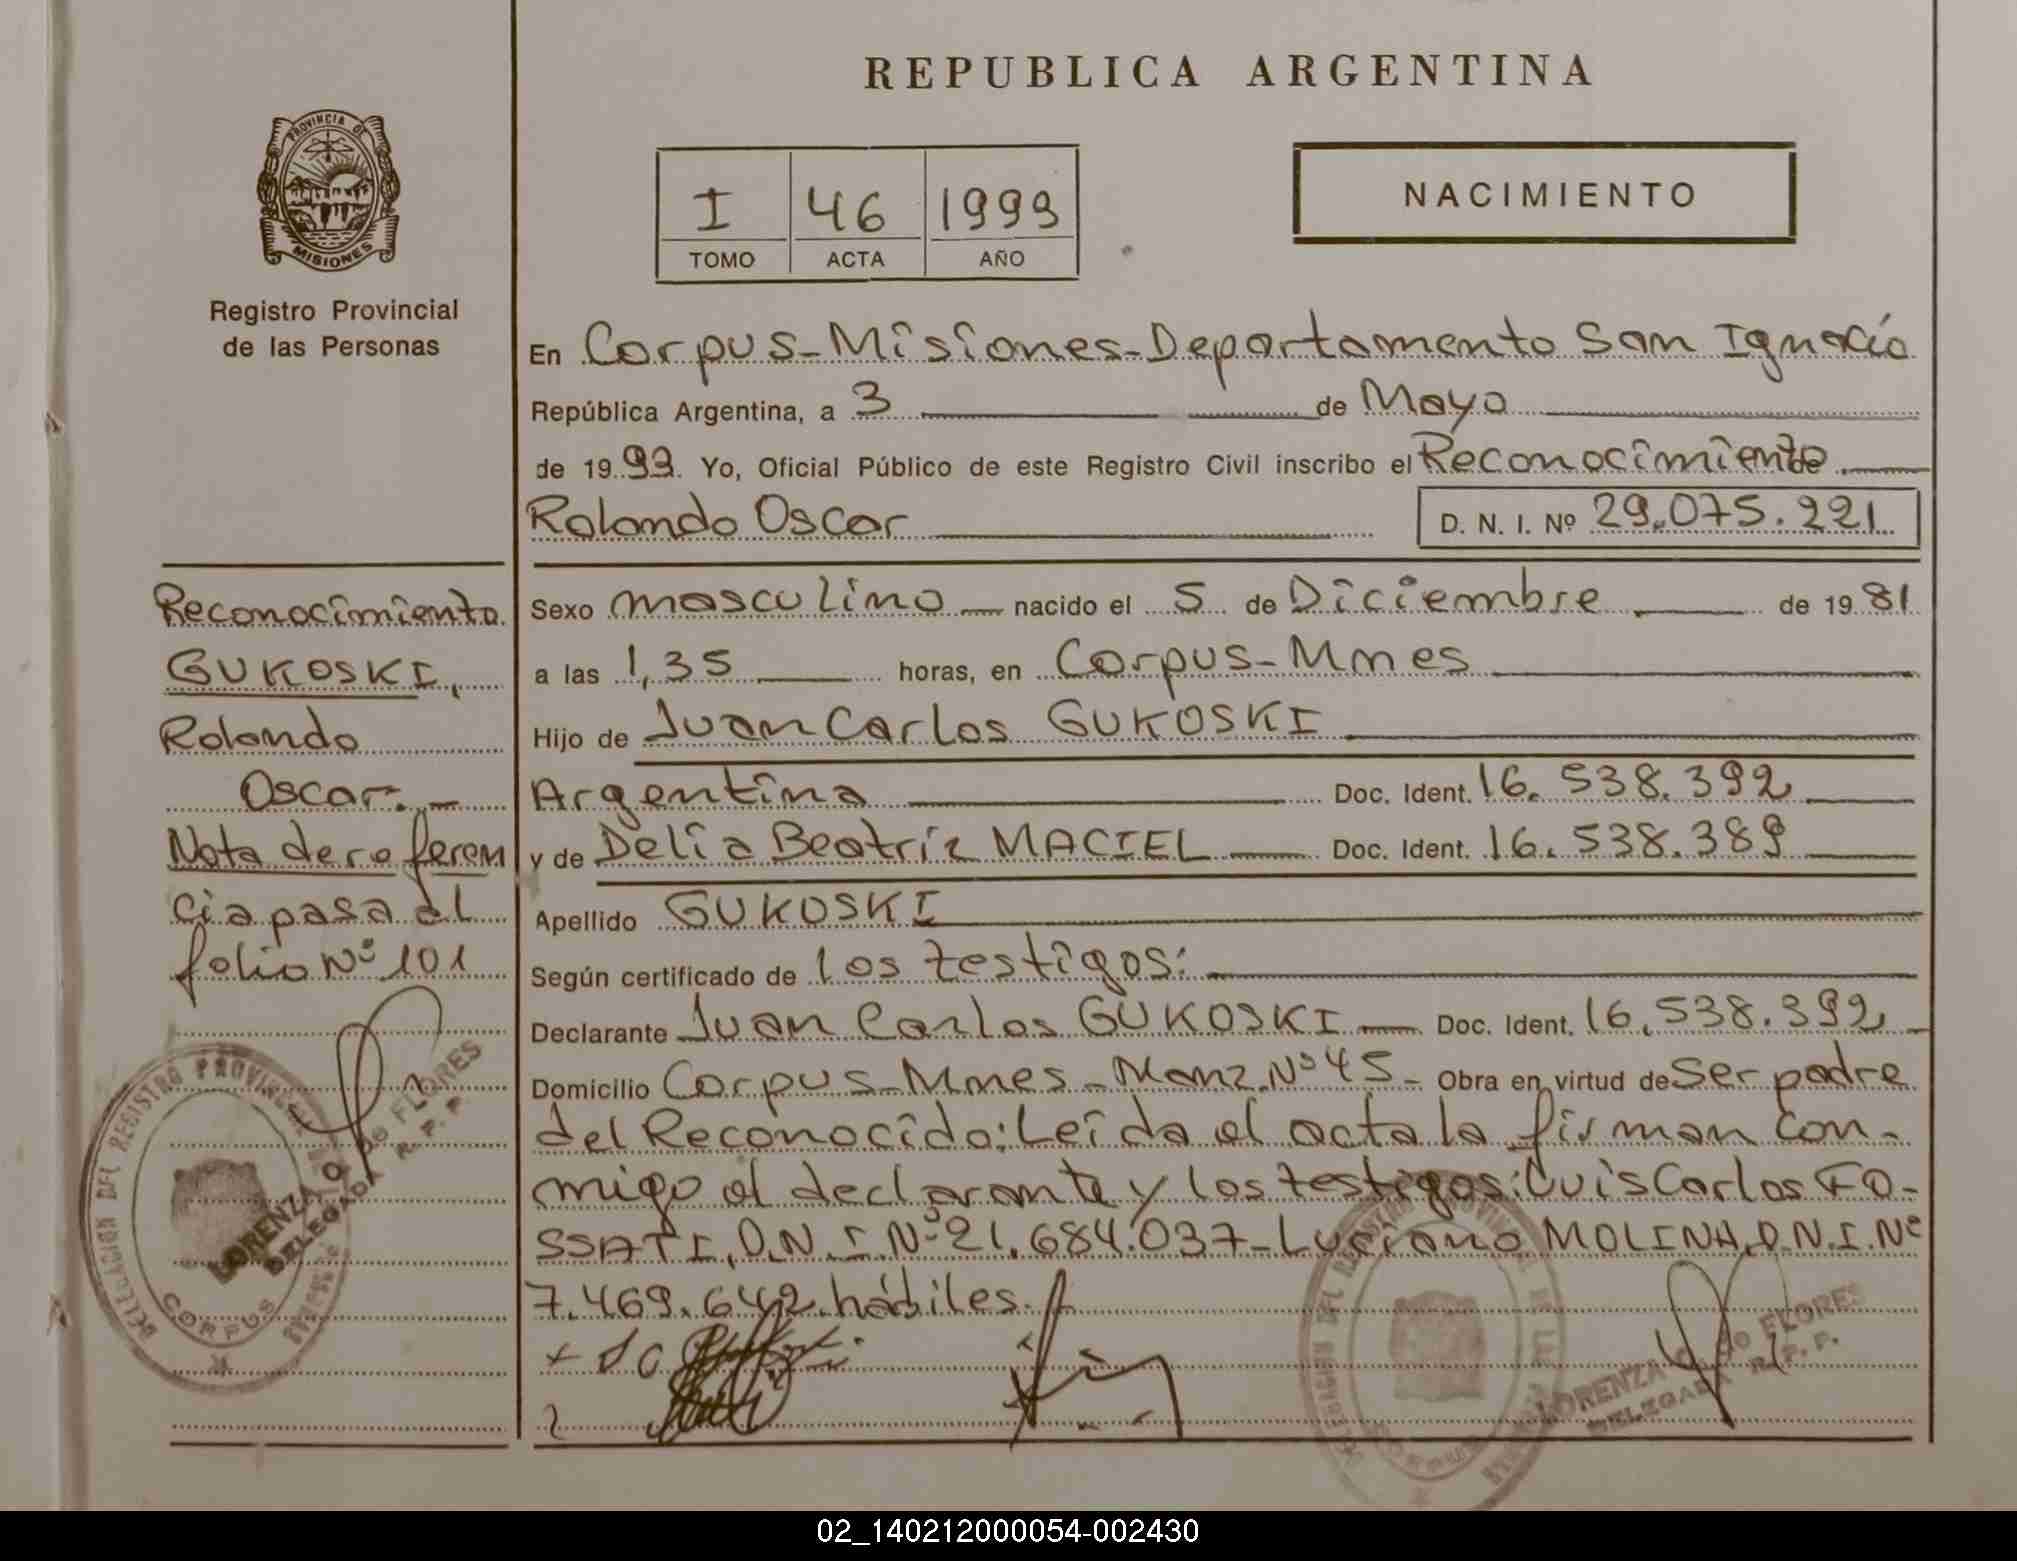 REPUBLICA ARGENTINA
PROVINCIA DE
MISIONES
Registro Provincial
de las Personas
I 46 1999
TOMO ACTA AÑO
NACIMIENTO
En Corpus-Misiones-Departamento San Ignacio
República Argentina, a 3 de Mayo
de 1999. Yo, Oficial Público de este Registro Civil inscribo el Reconocimiento
Rolando Oscar D. N. I. Nº 29.075.221
Sexo masculino nacido el 5 de Diciembre de 1981
a las 1,35 horas, en Corpus-Mnes
Hijo de Juan Carlos GUKOSKI
Argentina Doc. Ident. 16.538.392
y de Delia Beatriz MACIEL Doc. Ident. 16.538.389
Apellido GUKOSKI
Según certificado de los testigos:
Declarante Juan Carlos GUKOSKI Doc. Ident. 16.538.392
Domicilio Corpus-Mnes-Manz.Nº45- Obra en virtud de Ser padre
del Reconocido: Leída el acta la firman con-
migo el declarante y los testigos: Luis Carlos FO-
SSATI, D.N.I.Nº21.684.037-Luciano MOLINA, D.N.I.Nº
7.469.642 hábiles.
Reconocimiento
GUKOSKI,
Rolando
Oscar.-
Nota de referen
cia pasa al
folio Nº 101
DELEGACION DEL REGISTRO PROVINCIAL DE LAS
CORPUS
LORENZA de FLORES
DELEGADA R. P. P.
DELEGACION DEL REGISTRO PROVINCIAL DE LAS
CORPUS
LORENZA de FLORES
DELEGADA R. P. P.
02_140212000054-002430